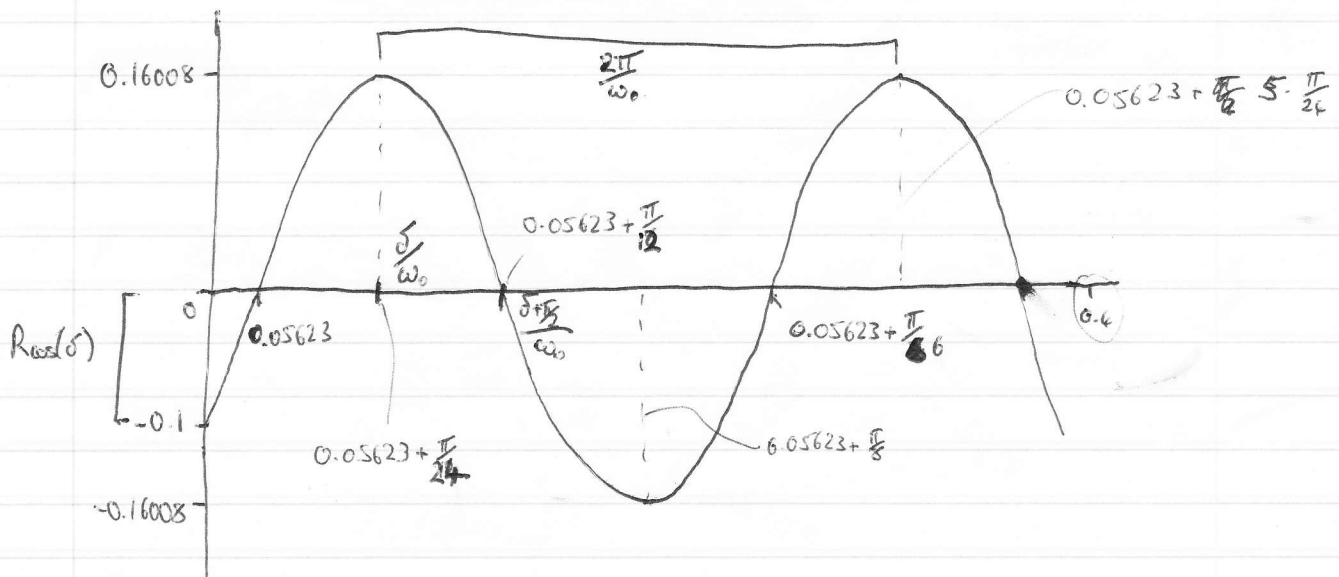 2π/ω₀
0.16008
0.05623 + π/2 5·π/24
0.05623 + π/12
δ/ω₀
0
0.05623
(δ+π/2)/ω₀
0.05623 + π/6
0.4
Rcos(δ)
-0.1
0.05623 + π/24
0.05623 + π/8
-0.16008